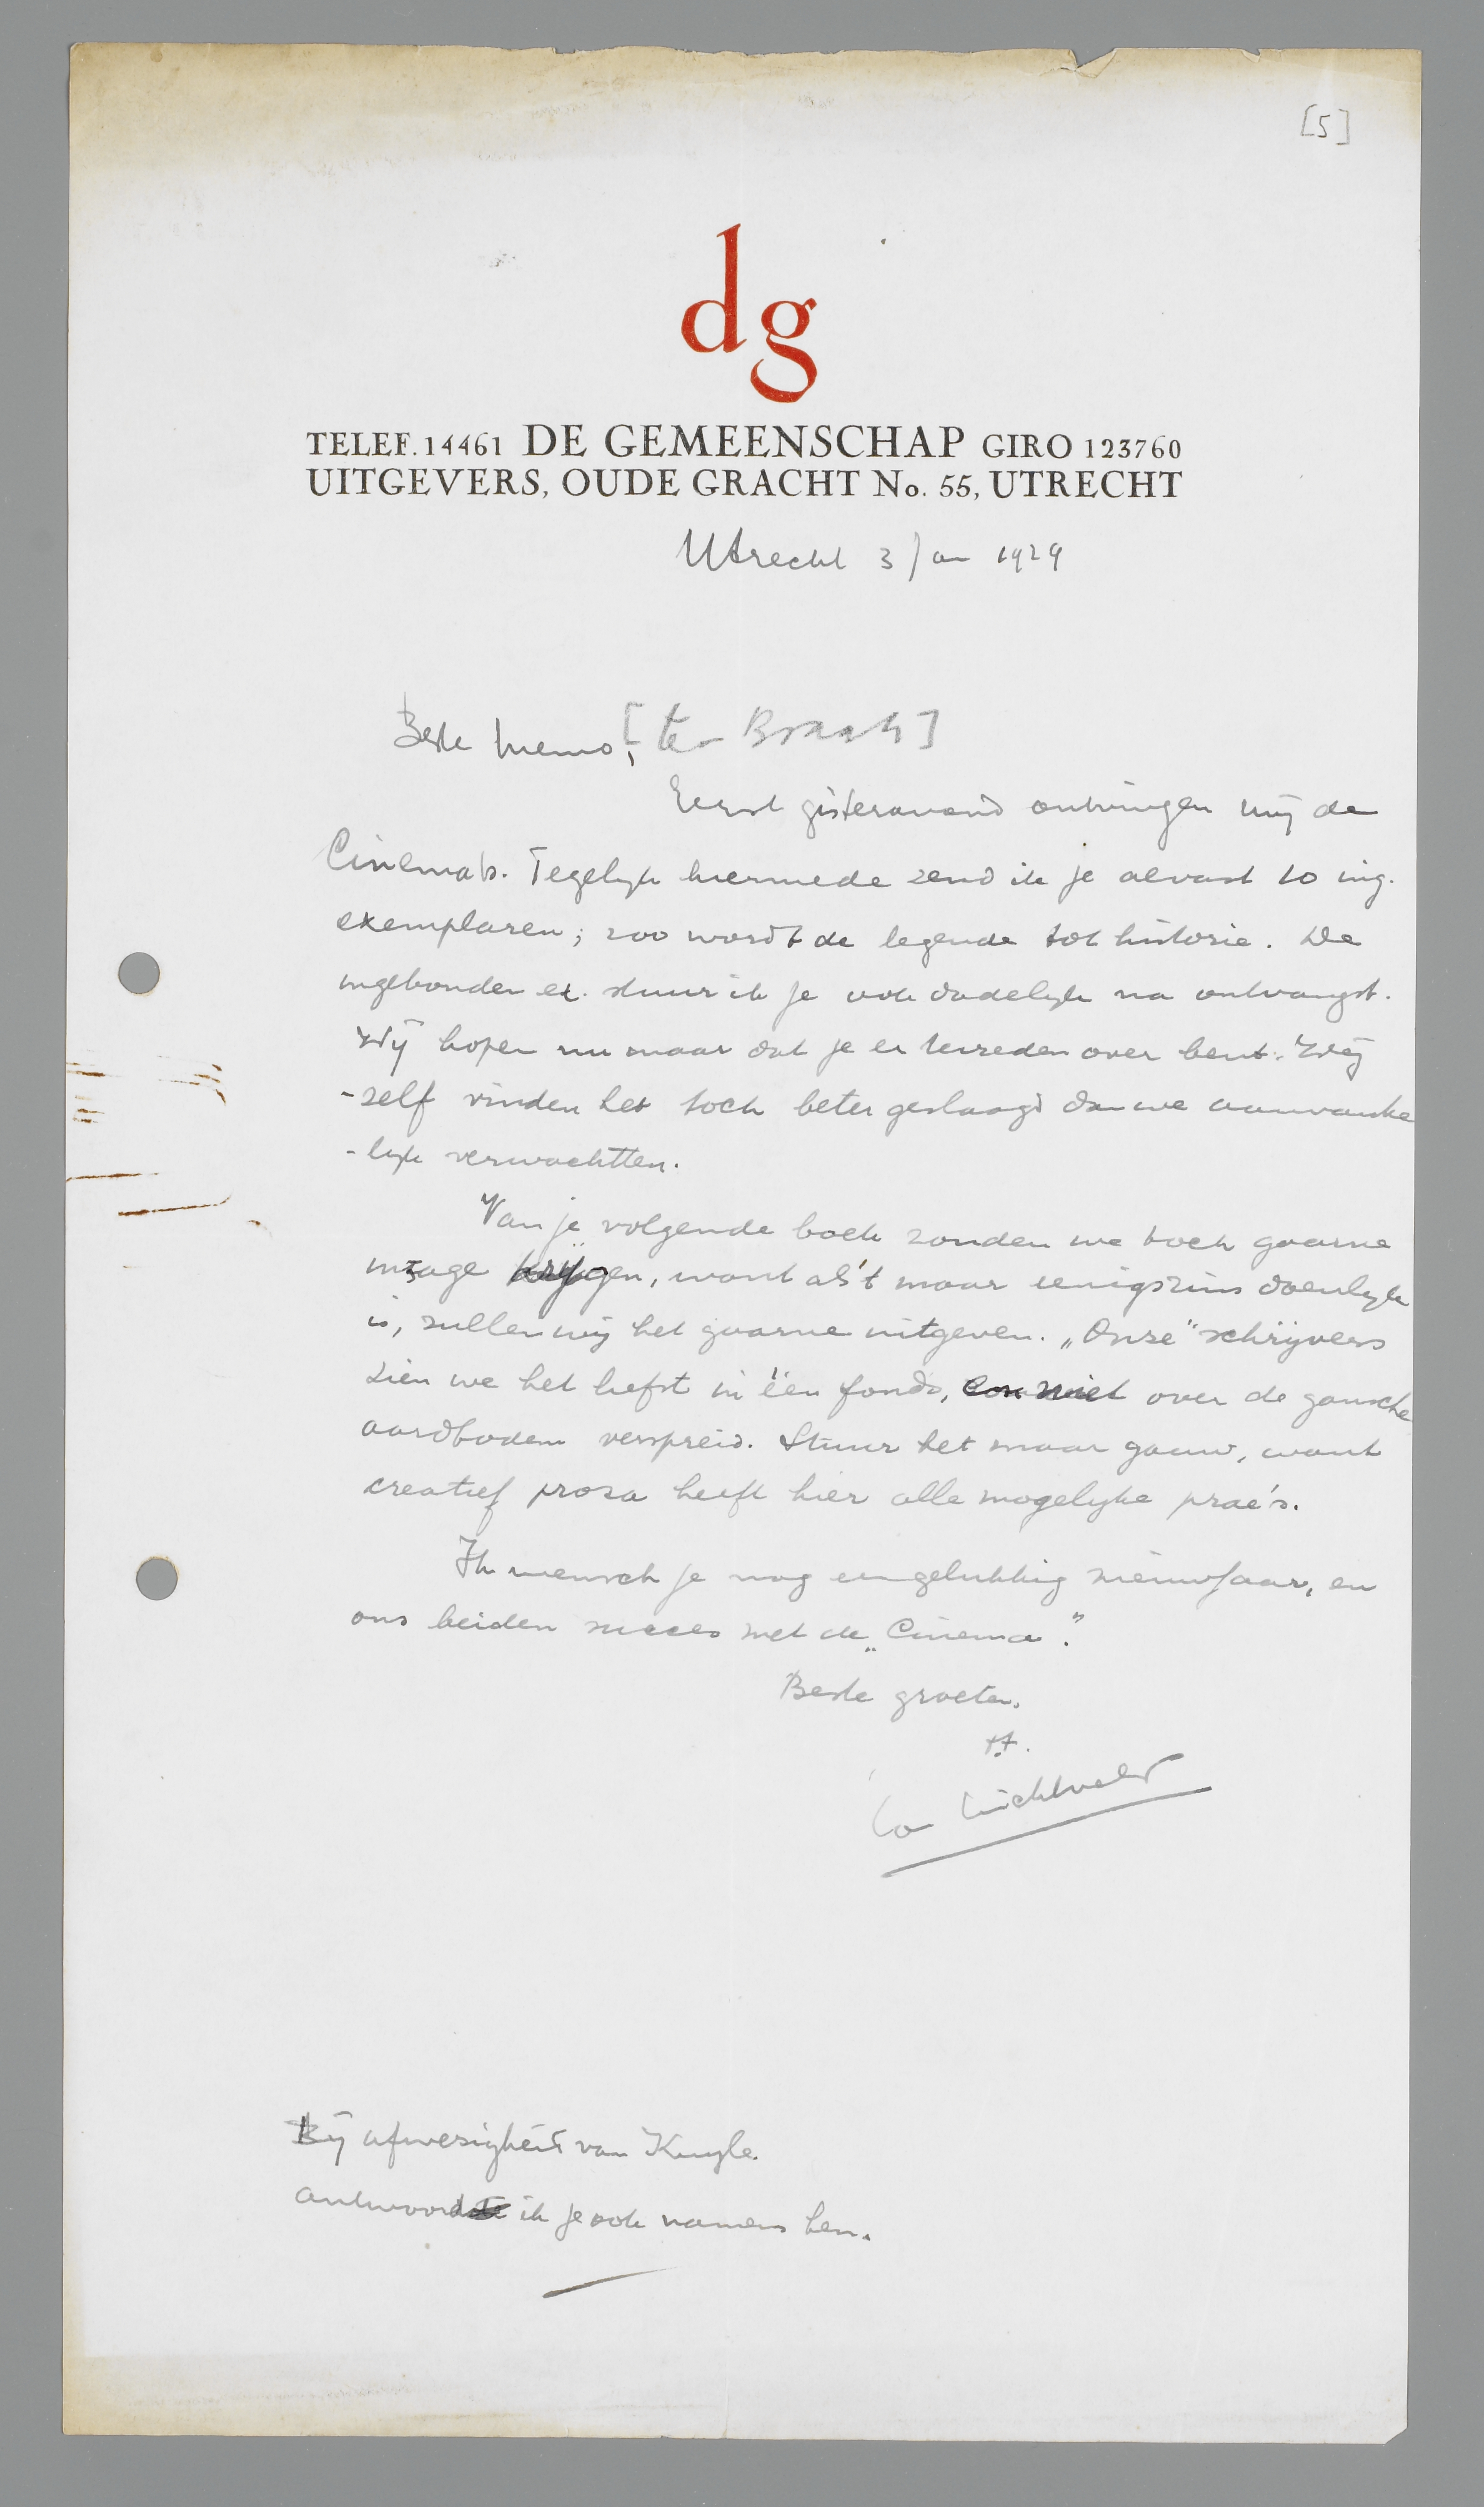 [5]
dg
TELEF. 14461 DE GEMEENSCHAP GIRO 123760
UITGEVERS, OUDE GRACHT No. 55, UTRECHT
Utrecht 3 Jan 1929
Beste Menno, [ter Braak]
Eerst gisteravond ontvingen wij de
Cinema's. Tegelijk hiermede zend ik je alvast 10 ing.
exemplaren; zoo wordt de legende tot historie. De
ingebonden ex. stuur ik je ook dadelijk na ontvangst.
Wij hopen nu maar dat je er tevreden over bent. Wij
-zelf vinden het toch beter geslaagd dan we aanvanke
-lijk verwachtten.
Van je volgende boek zouden we toch gaarne
inzage krijgen, want als 't maar eenigszins doenlijk
is, zullen wij het gaarne uitgeven. „Onze" schrijvers
zien we het liefst in één fonds, niet over de gansche
aardbodem verspreid. Stuur het maar gauw, want
creatief proza heeft hier alle mogelijke prae's.
Ik wensch je nog een gelukkig nieuwjaar, en
ons beiden succes met de „Cinema".
Beste groeten.
t.t.
Lou Lichtveld
Bij afwezigheid van Kuyle.
antwoord ik je ook namens hen.